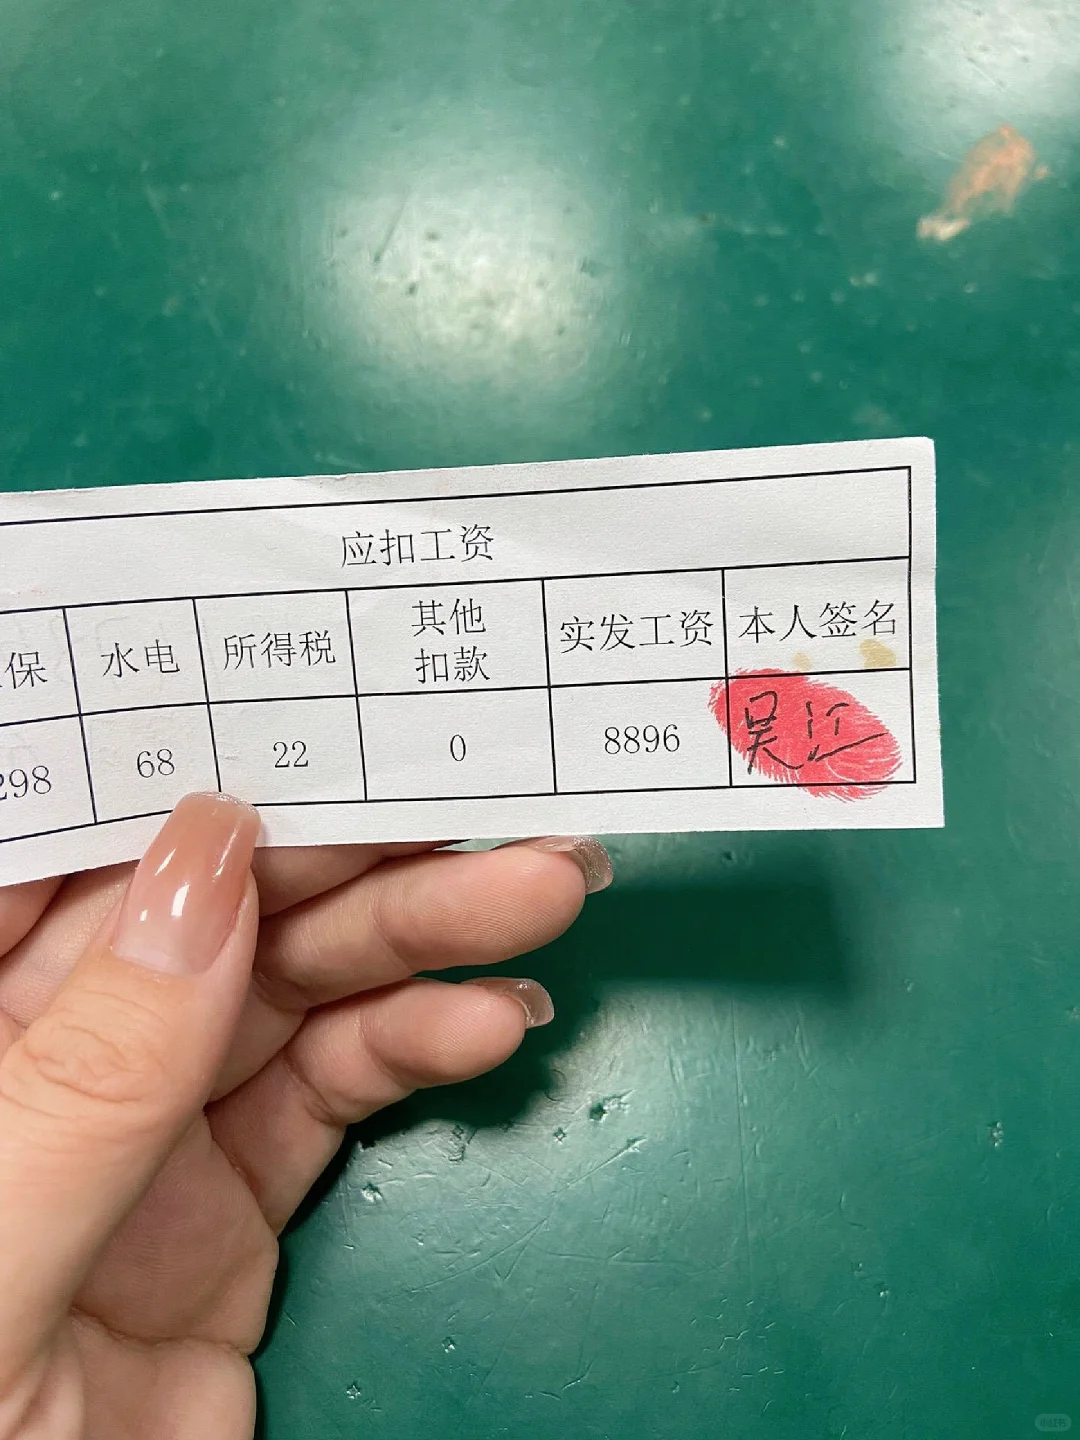 应扣工资
保
水电
所得税
其他
扣款
实发工资
本人签名
298
68
22
0
8896
吴江